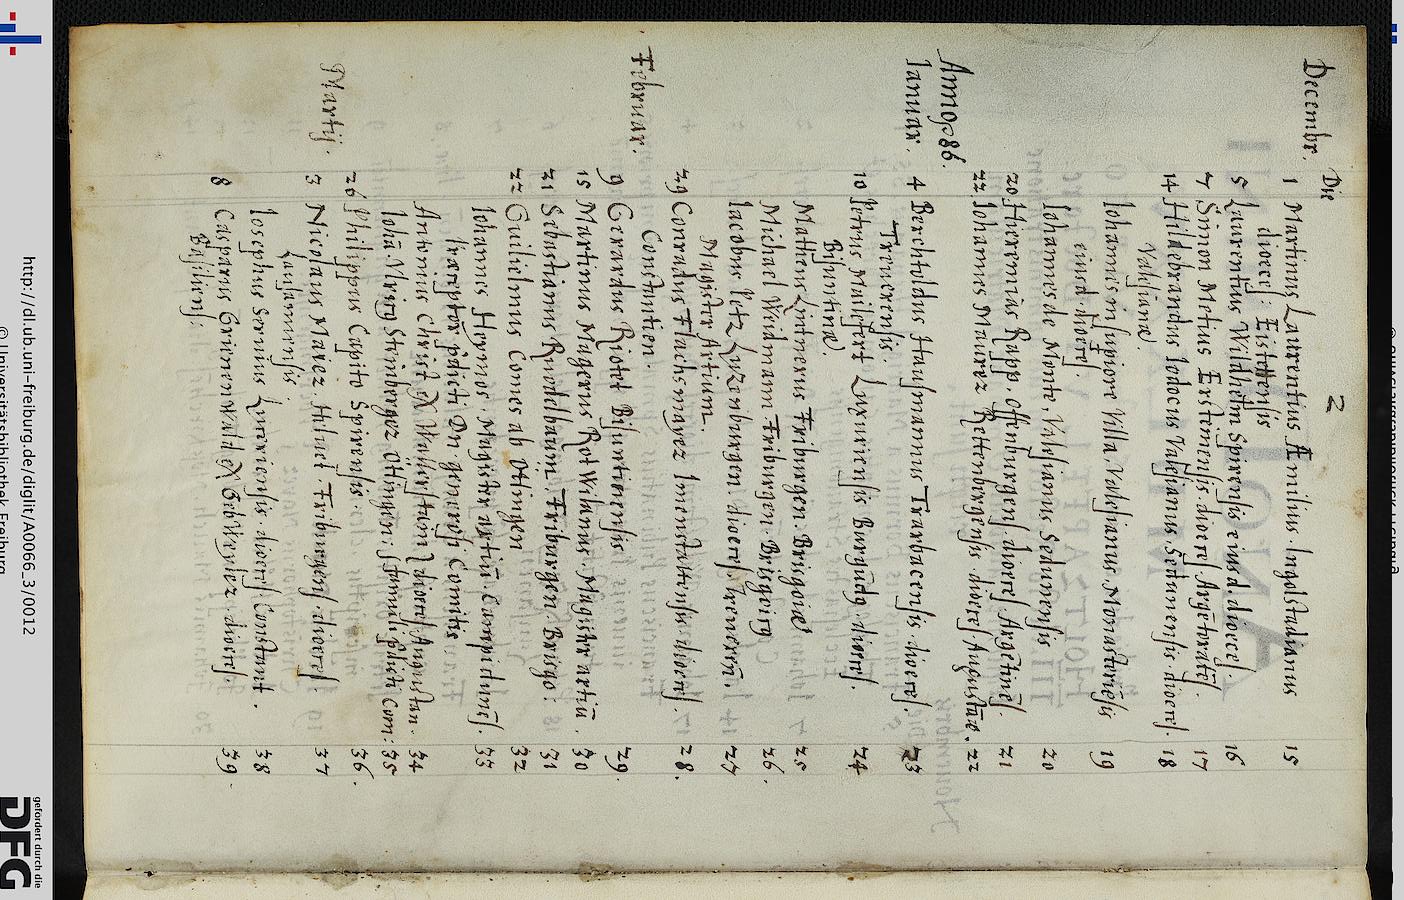 2
Decembr. Die
1 Martinus Laurentius Æmilius Ingolstadianus 15
diocesˢ: Eistettensis
5 Laurentius Wildhelm Spirensis eiusd. dioceˢ. 16
7 Simon Metus Ersteinensis dioceˢ Argētoratēˢ. 17
14 Hildebrandus Iodocus Valesianus Sedunensis dioceˢ. 18
Valesianæ
Iohannes in superiore Villa Valesianus 19
eiusd. dioceˢ
Iohannes de Monte, Valesianus Sedunensis 20
20 Hieremias Rapp. Offenburgensˢ. dioceˢ. Argētinēˢ. 21
22 Iohannes Maurez Rettenbergensis dioceˢ Augustāæ. 22
Anno 86.
Ianuar. 4 Berchtoldus Hausmannus Trarbacensis dioceˢ. 23
Treuerensis
10 Petrus Mailefert Luxuriensis Burgūdꝰ dioceˢ. 24
Bisuntinæ.
Mathæus Lintnerus Friburgen. Brisgoiæ 25
Michael Widmann Friburgen. Brisgoiꝰ 26.
Iacobus Petz Luzenburgen. dioceˢ. 27
Magister Artium.
29 Conradus Flachsmayer dioceˢ. 28.
Constantien.
Februar. 9 Gerardus Riotet Bisuntinensis 29.
15 Martinus Magerus RotWilanus. Magister artiū. 30
21 Sebastianus Rudelbaum Friburgen. Brisgo: 31
22 Guilielmus Comes ab Ötingen 32
Iohannes Hermos Magister artiū Campidunēˢ. 33
Præceptor p̄dicti Dn. generosi Comitis
Antonius Christ dioceˢ. Augustan. 34
Iohā. Vlrich Steinberger Ottingen: famul p̄dicti Com: 35
26 Philippus Capito Spirensis. 36.
Martij. 3 Nicolaus Marez. Heluet. Friburgenˢ. dioceˢ 37
Lausannensis.
Iosephus Seruius Luxouiensis dioceˢ Constant. 38
8 Casparus GrienenWald dioceˢ 39.
Basiliensˢ:
http://dl.ub.uni-freiburg.de/diglit/A0066_3/0012
© Universitätsbibliothek Freiburg
gefördert durch die
DFG